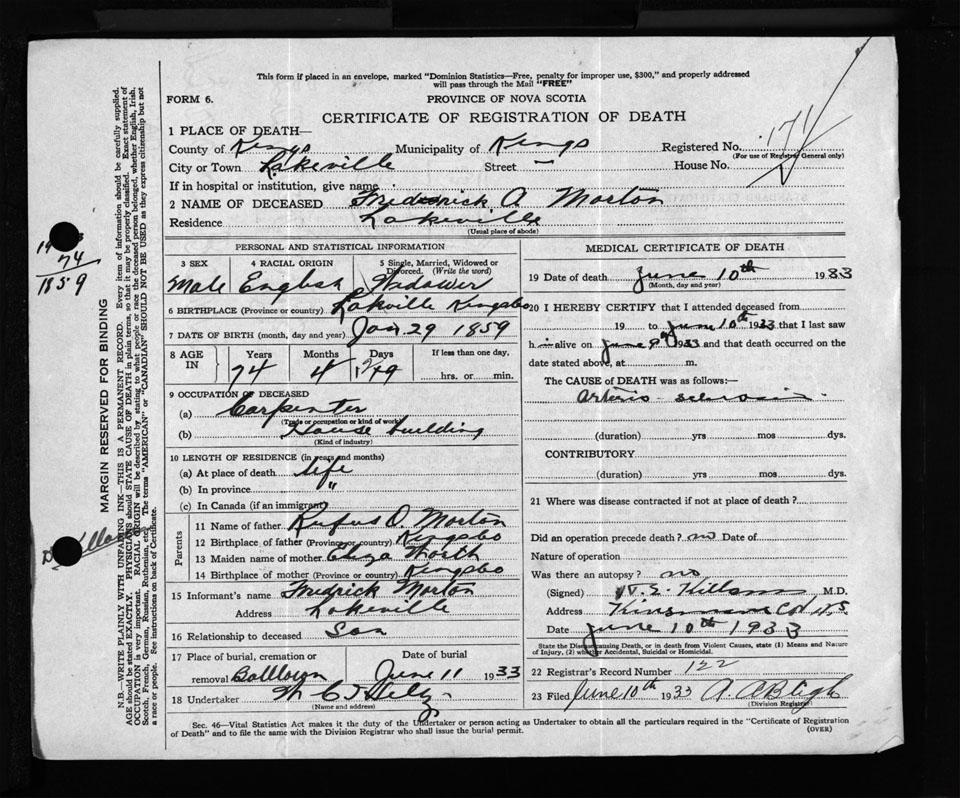 This form if placed in an envelope, marked "Dominion Statistics—Free, penalty for improper use, $300," and properly addressed
will pass through the Mail "FREE"
FORM 6.
PROVINCE OF NOVA SCOTIA
CERTIFICATE OF REGISTRATION OF DEATH
1 PLACE OF DEATH—
County of Kings Municipality of Kings Registered No. 171
(For use of Registrar General only)
City or Town Lakeville Street — House No.
If in hospital or institution, give name
2 NAME OF DECEASED Fredrick A Morton
Residence Lakeville
(Usual place of abode)
PERSONAL AND STATISTICAL INFORMATION
3 SEX 4 RACIAL ORIGIN 5 Single, Married, Widowed or Divorced. (Write the word)
Male English Widower
6 BIRTHPLACE (Province or country) Lakville Kingsbo
7 DATE OF BIRTH (month, day and year) Jan 29 1859
8 AGE IN Years Months Days If less than one day,
74 4 hrs. or min.
9 OCCUPATION OF DECEASED
(a) Carpenter
(Trade or occupation or kind of work)
(b) House building
(Kind of industry)
10 LENGTH OF RESIDENCE (in years and months)
(a) At place of death life
(b) In province "
(c) In Canada (if an immigrant)
Parents
11 Name of father Rufus O. Morton
12 Birthplace of father (Province or country) Kingsbo
13 Maiden name of mother Eliza North
14 Birthplace of mother (Province or country) Kingsbo
15 Informant's name Fredrick Morton
Address Lakeville
16 Relationship to deceased Son
17 Place of burial, cremation or removal Date of burial
June 11 1933
18 Undertaker
(Name and address)
MEDICAL CERTIFICATE OF DEATH
19 Date of death June 10th 1933
(Month, day and year)
20 I HEREBY CERTIFY that I attended deceased from
19 to June 10th 1933 that I last saw
h im alive on June 9th 1933 and that death occurred on the
date stated above, at m.
The CAUSE of DEATH was as follows:—
Arterio-sclerosis
(duration) yrs mos dys.
CONTRIBUTORY
(duration) yrs mos dys.
21 Where was disease contracted if not at place of death?
Did an operation precede death? no Date of
Nature of operation
Was there an autopsy? no
(Signed) M.D.
Address
Date June 10th 1933
State the Disease causing Death, or in death from Violent Causes, state (1) Means and Nature
of Injury, (2) whether Accidental, Suicidal or Homicidal.
22 Registrar's Record Number 122
23 Filed June 10th 1933 A. A Bligh
(Division Registrar)
Sec. 46—Vital Statistics Act makes it the duty of the Undertaker or person acting as Undertaker to obtain all the particulars required in the "Certificate of Registration
of Death" and to file the same with the Division Registrar who shall issue the burial permit. (OVER)
MARGIN RESERVED FOR BINDING
N.B.—WRITE PLAINLY WITH UNFADING INK—THIS IS A PERMANENT RECORD. Every item of information should be carefully supplied.
AGE should be stated EXACTLY. PHYSICIANS should STATE CAUSE OF DEATH in plain terms, so that it may be properly classified. Exact statement of
OCCUPATION is very important. RACIAL ORIGIN will be described by stating to what people or race the deceased person belonged, whether English, Irish,
Scotch, French, German, Russian, Ruthenian, etc. The terms "AMERICAN" or "CANADIAN" SHOULD NOT BE USED as they express citizenship but not
a race or people. See instructions on back of Certificate.
74
1859